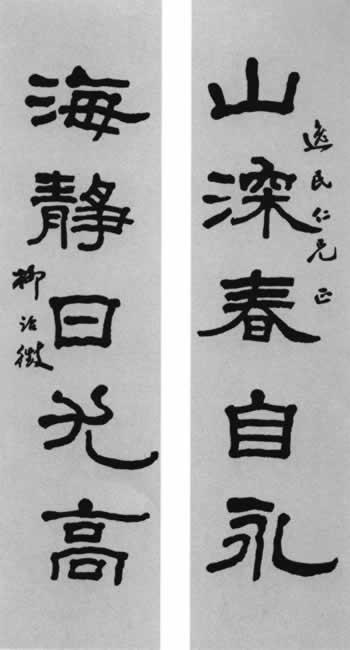 逸民仁兄正
山深春自永
海静日光高
柳诒徵